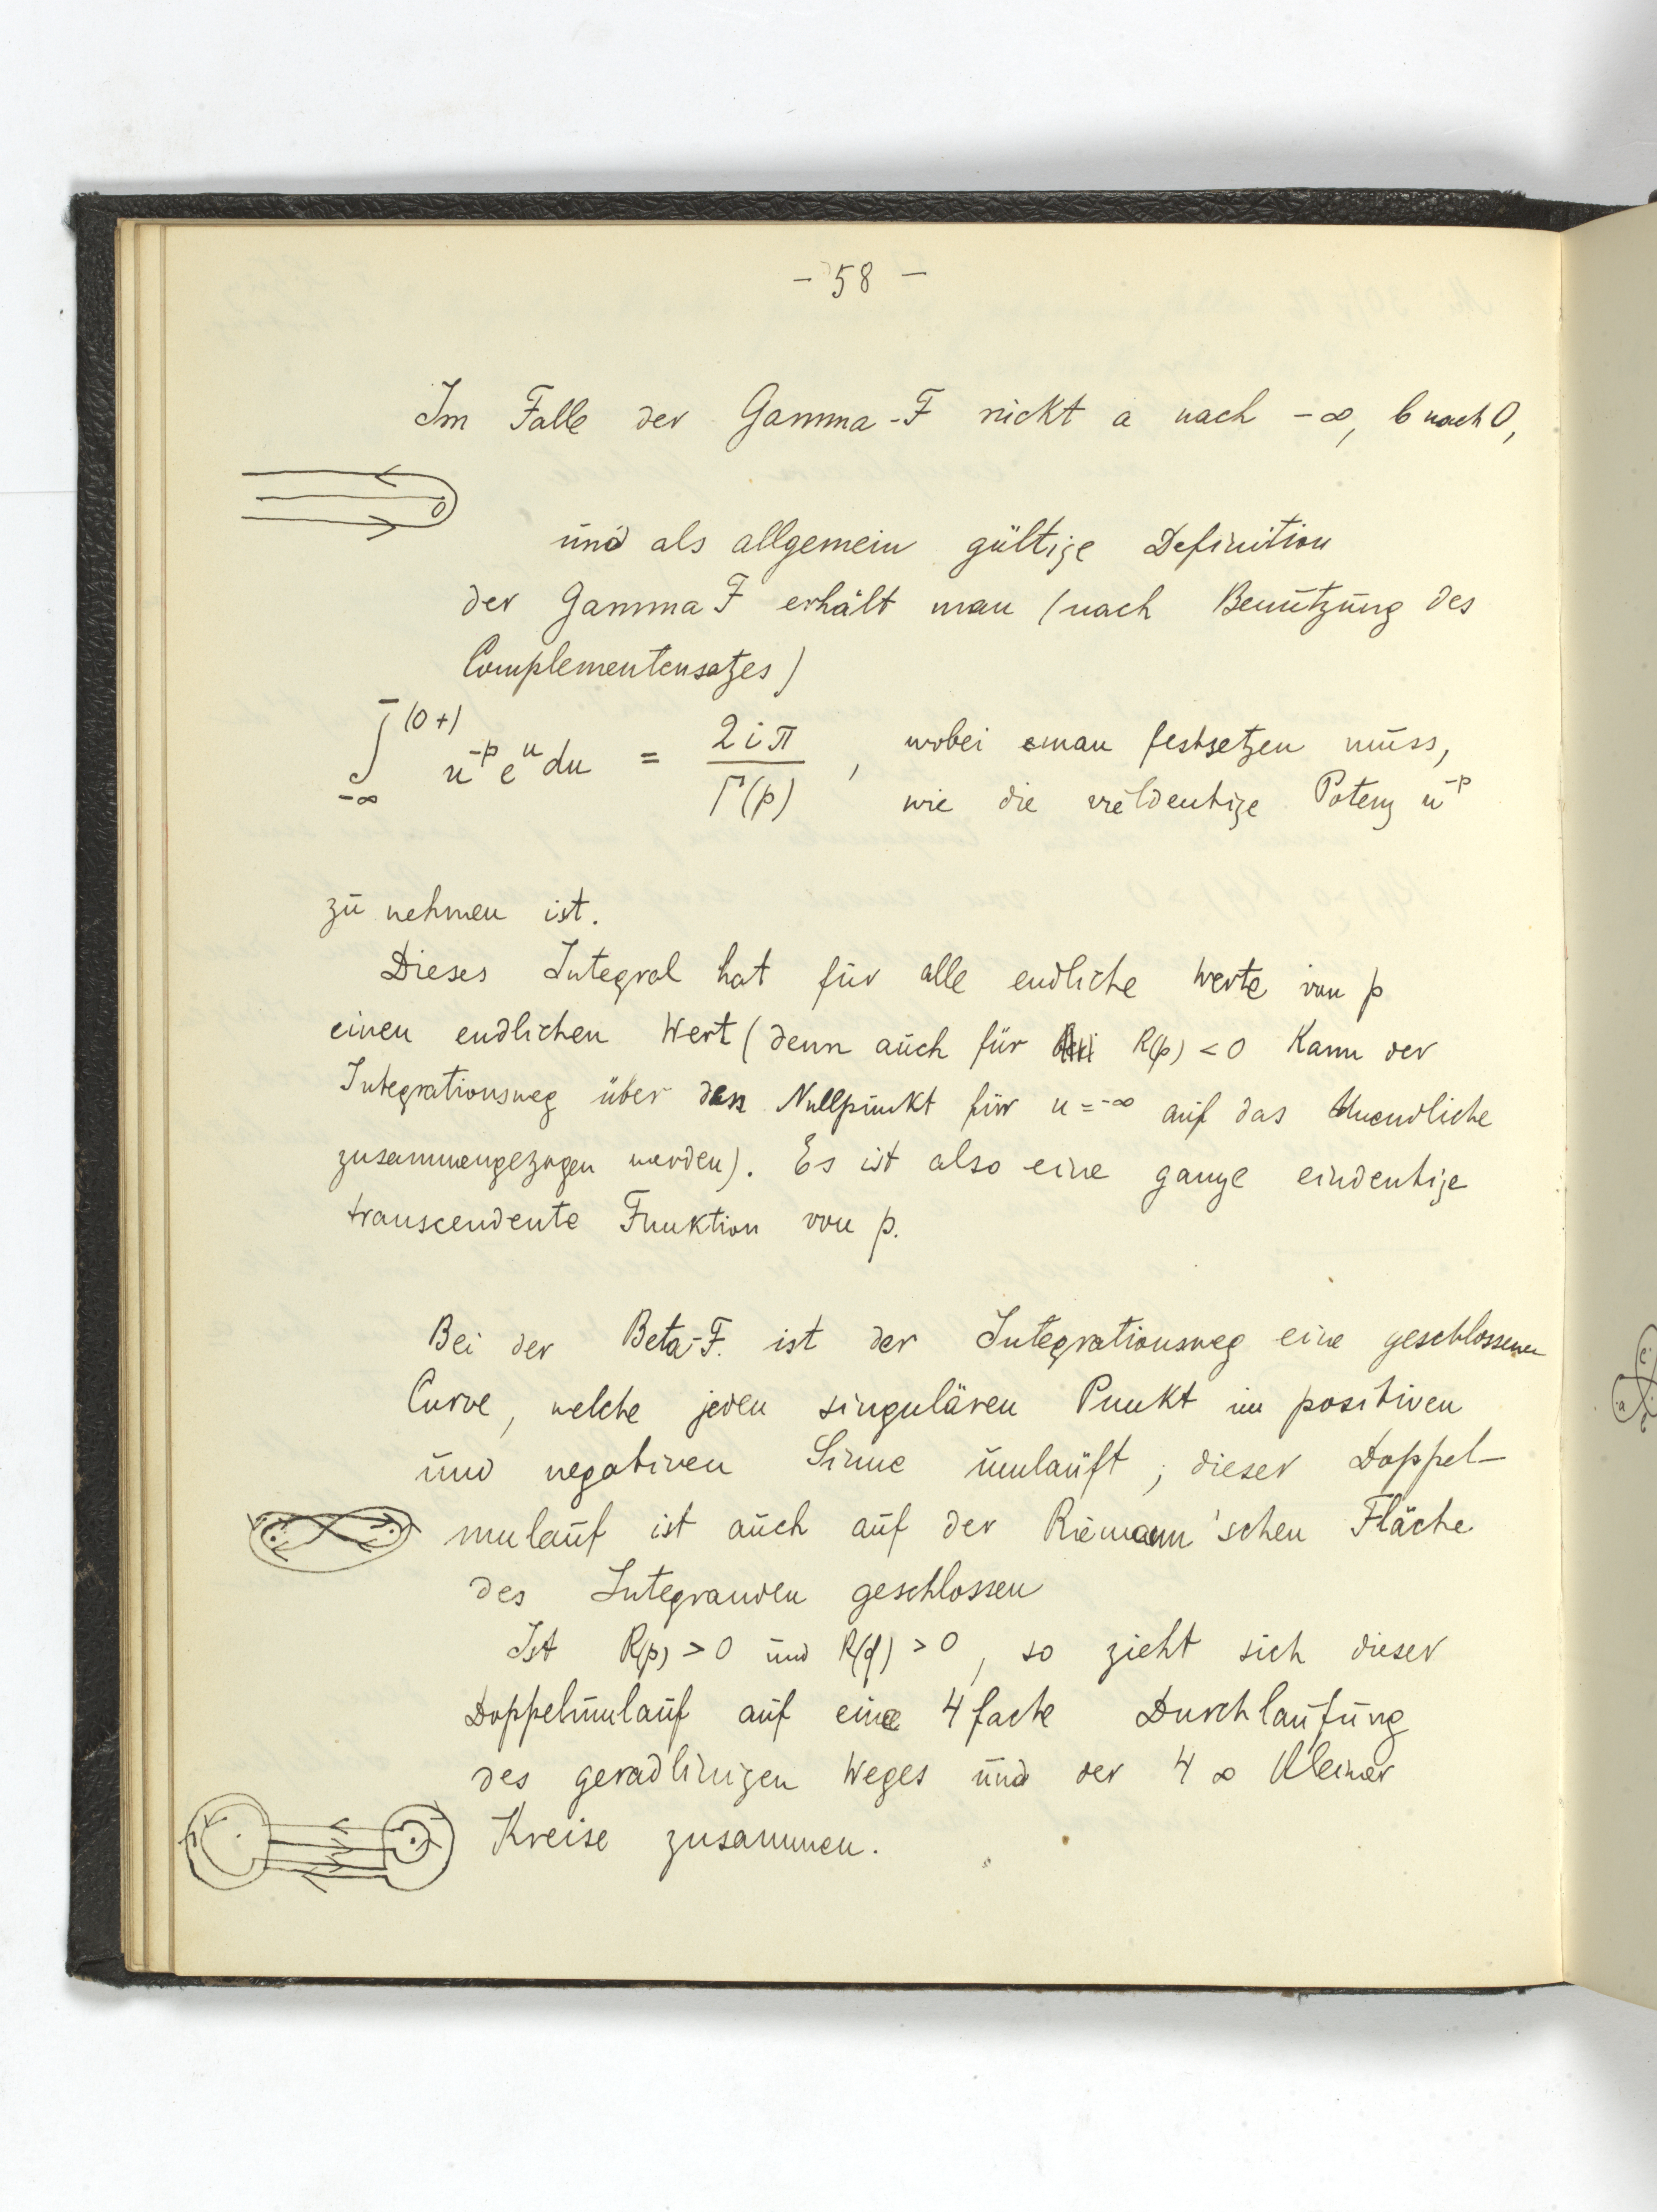 - 58 -
Im Falle der Gamma-F rückt a nach -∞, b nach 0,
0
und als allgemein gültige Definition
der Gamma F erhält man (nach Benützung des
Complementensatzes)
∫_{-∞}^{(0+)} u^{-p} e^u du = 2iπ / Γ(p) , wobei man festsetzen muss,
wie die vieldeutige Potenz u^{-p}
zu nehmen ist.
Dieses Integral hat für alle endliche Werte von p
einen endlichen Wert (denn auch für R(p) < 0 kann der
Integrationsweg über den Nullpunkt für u = -∞ auf das Unendliche
zusammengezogen werden). Es ist also eine ganze eindeutige
transcendente Funktion von p.
Bei der Beta-F. ist der Integrationsweg eine geschlossene
Curve, welche jeden singulären Punkt im positiven
und negativen Sinne umlauft; dieser Doppel-
umlauf ist auch auf der Riemann'schen Fläche
des Integranden geschlossen
Ist R(p) > 0 und R(q) > 0, so zieht sich dieser
Doppelumlauf auf eine 4 fache Durchlaufung
des geradlinigen Weges und der 4 ∞ kleiner
Kreise zusammen.